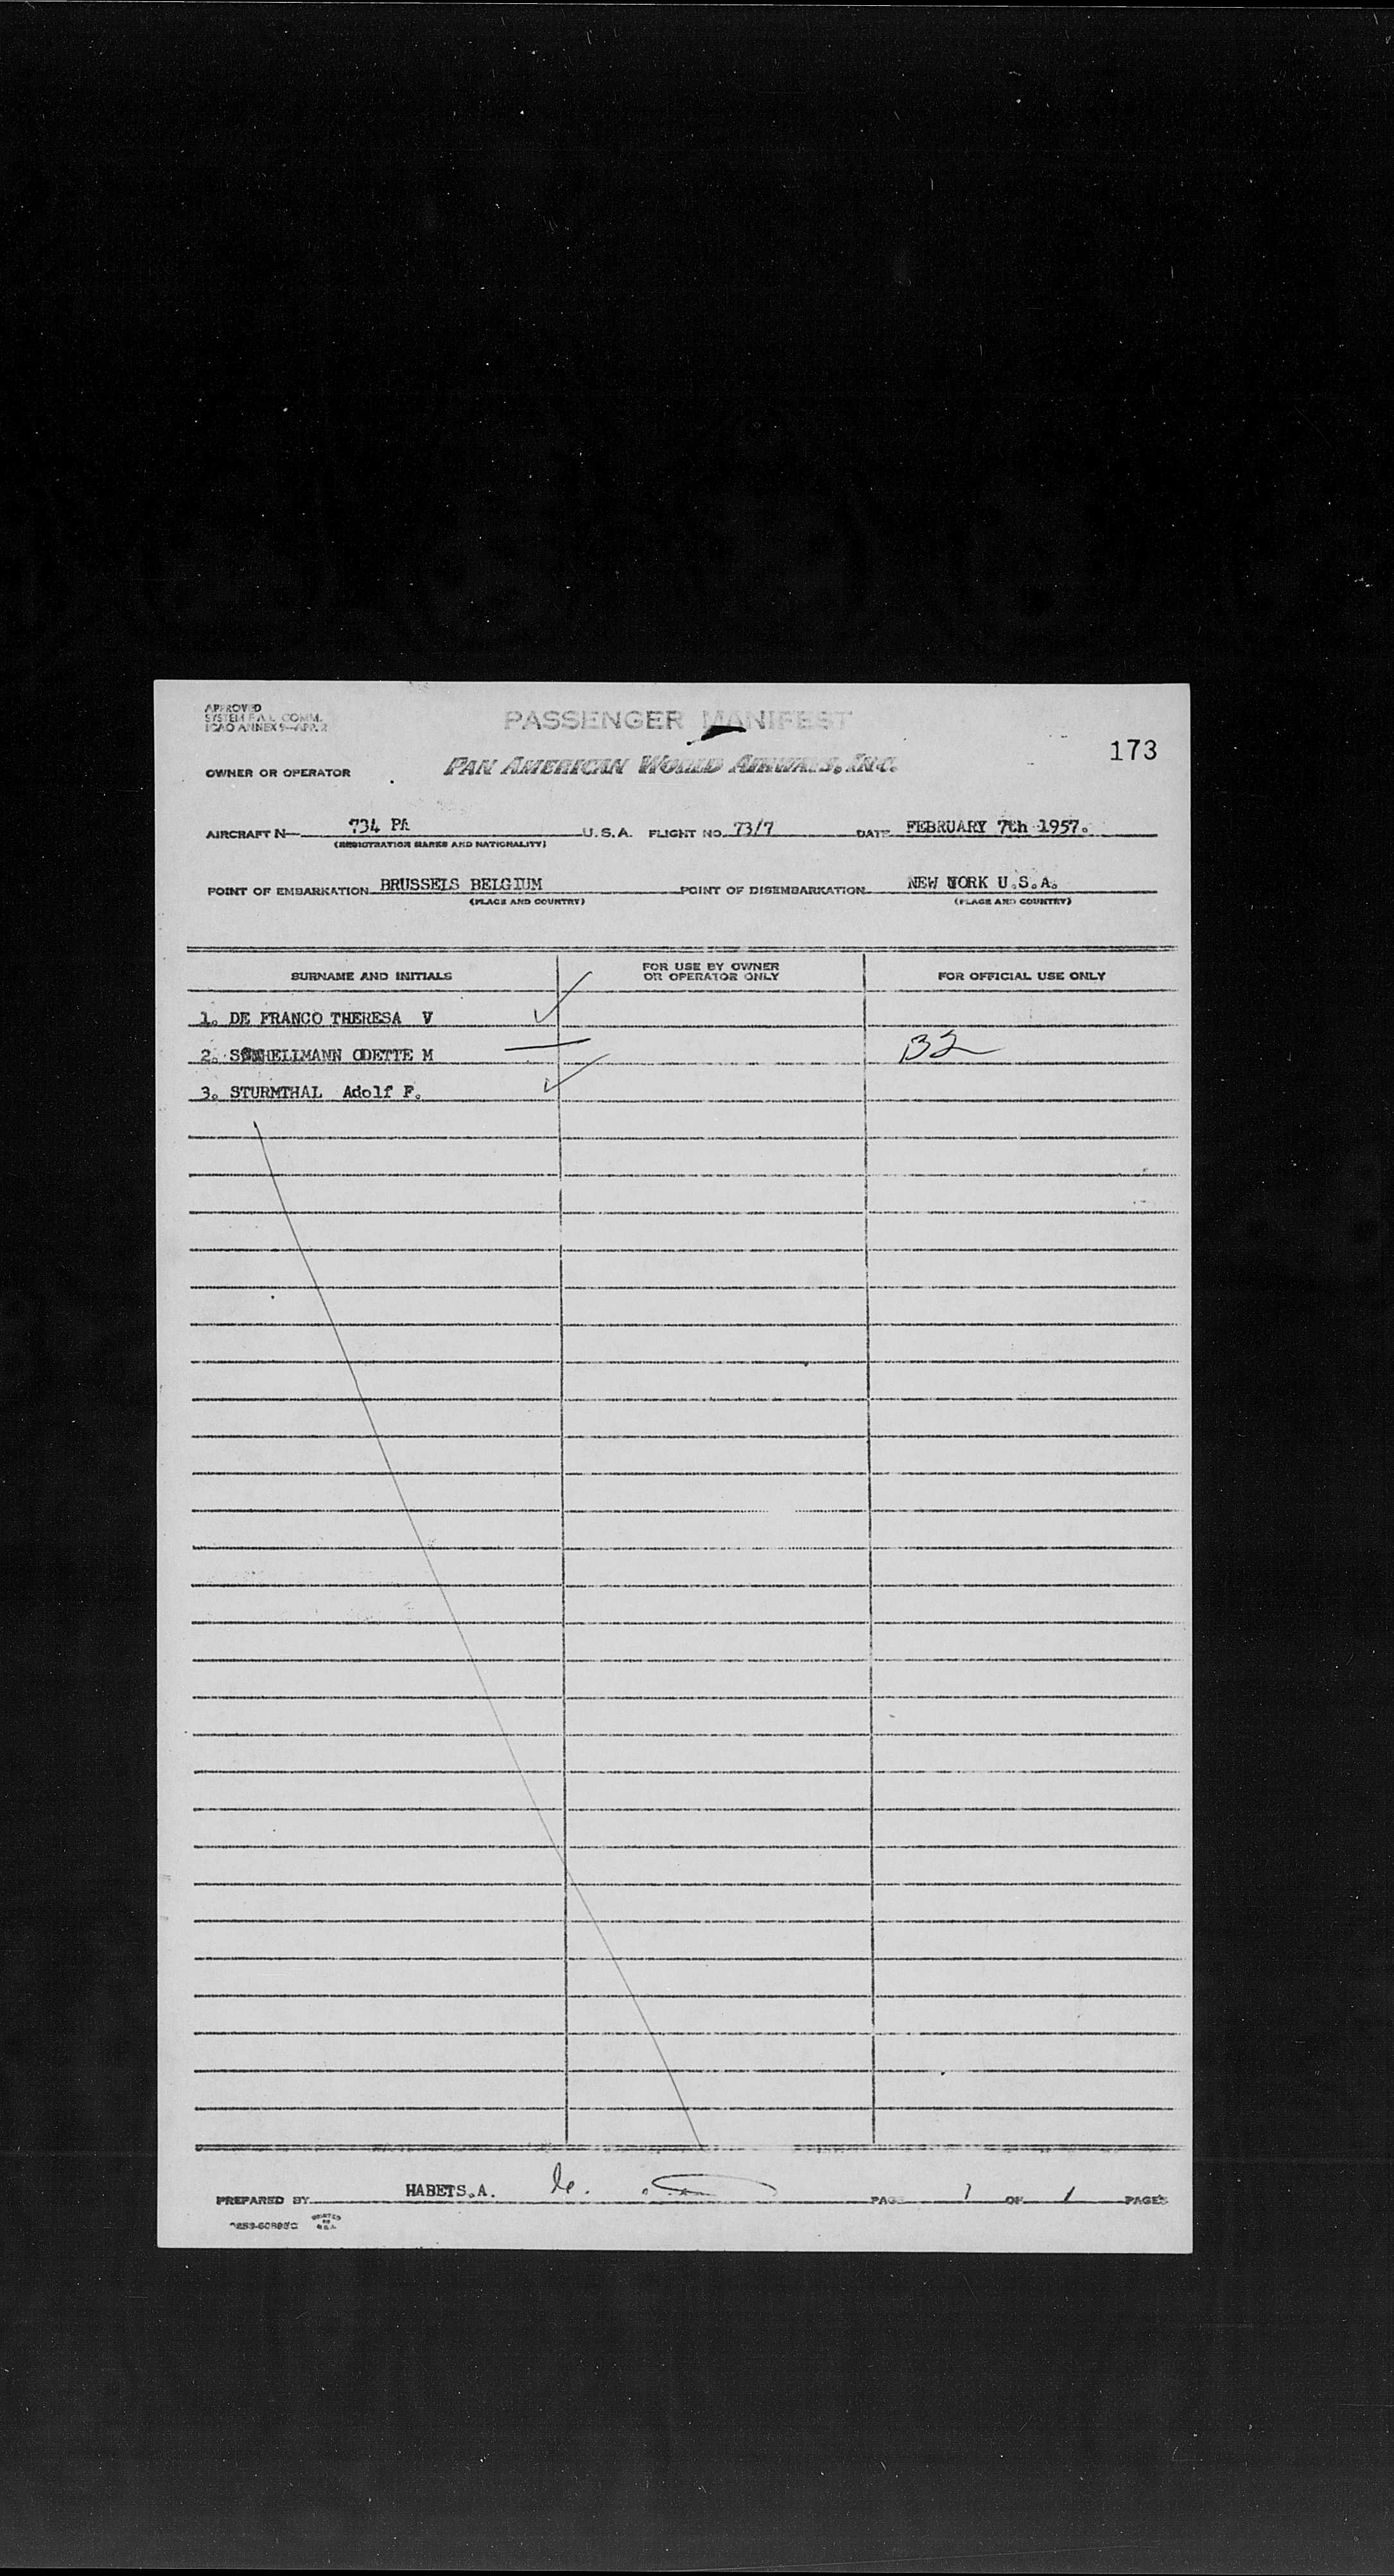 APPROVED
SYSTEM F.A.L. COMM.
ICAO ANNEX 9-APP. 2
PASSENGER MANIFEST
173
OWNER OR OPERATOR PAN AMERICAN WORLD AIRWAYS, INC.
AIRCRAFT N- 734 PA U.S.A. FLIGHT NO. 73/7 DATE FEBRUARY 7th 1957.
(REGISTRATION MARKS AND NATIONALITY)
POINT OF EMBARKATION BRUSSELS BELGIUM POINT OF DISEMBARKATION NEW YORK U.S.A.
(PLACE AND COUNTRY) (PLACE AND COUNTRY)
SURNAME AND INITIALS FOR USE BY OWNER OR OPERATOR ONLY FOR OFFICIAL USE ONLY
1. DE FRANCO THERESA V
2. ODETTE M B2
3. STURMTHAL Adolf F.
PREPARED BY HABETS.A. PAGE 1 OF 1 PAGES
PRINTED IN U.S.A.